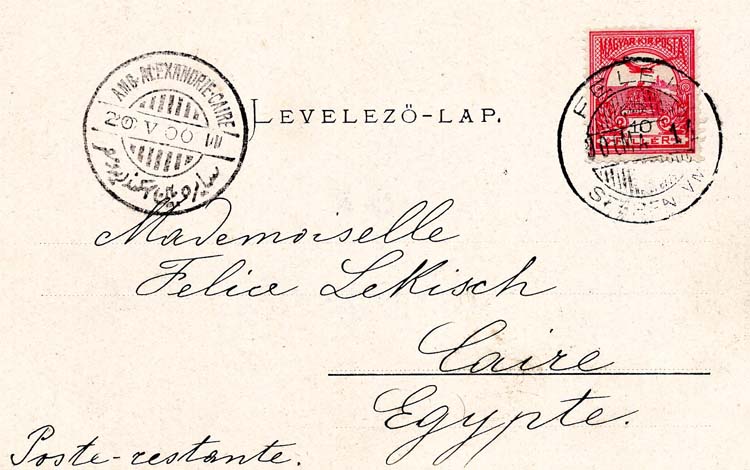 AMB-ALEXANDRIE-CAIRE
20 V 00
LEVELEZŐ-LAP.
MAGYAR KIR POSTA
10
FELEK
SZEBEN VM
Mademoiselle
Felice Lekisch
Caire
Egypte.
Poste-restante.